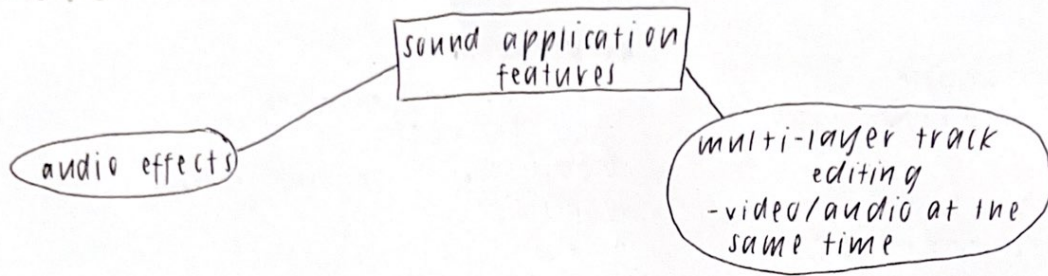 sound application
features
audio effects
multi-layer track
editing
-video/audio at the
same time